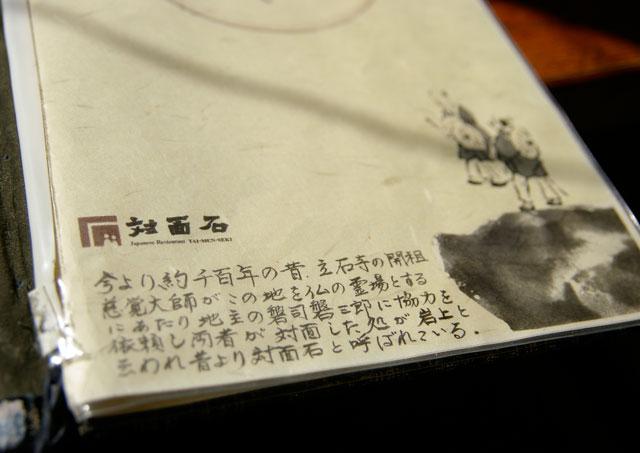 対面石
Japanese Restaurant TAI-MEN-SEKI
今より約千百年の昔、立石寺の開祖
慈覚大師がこの地を仏の霊場とする
にあたり地主の磐司磐三郎に協力を
依頼し両者が対面した処が岩上と
云われ昔より対面石と呼ばれている.